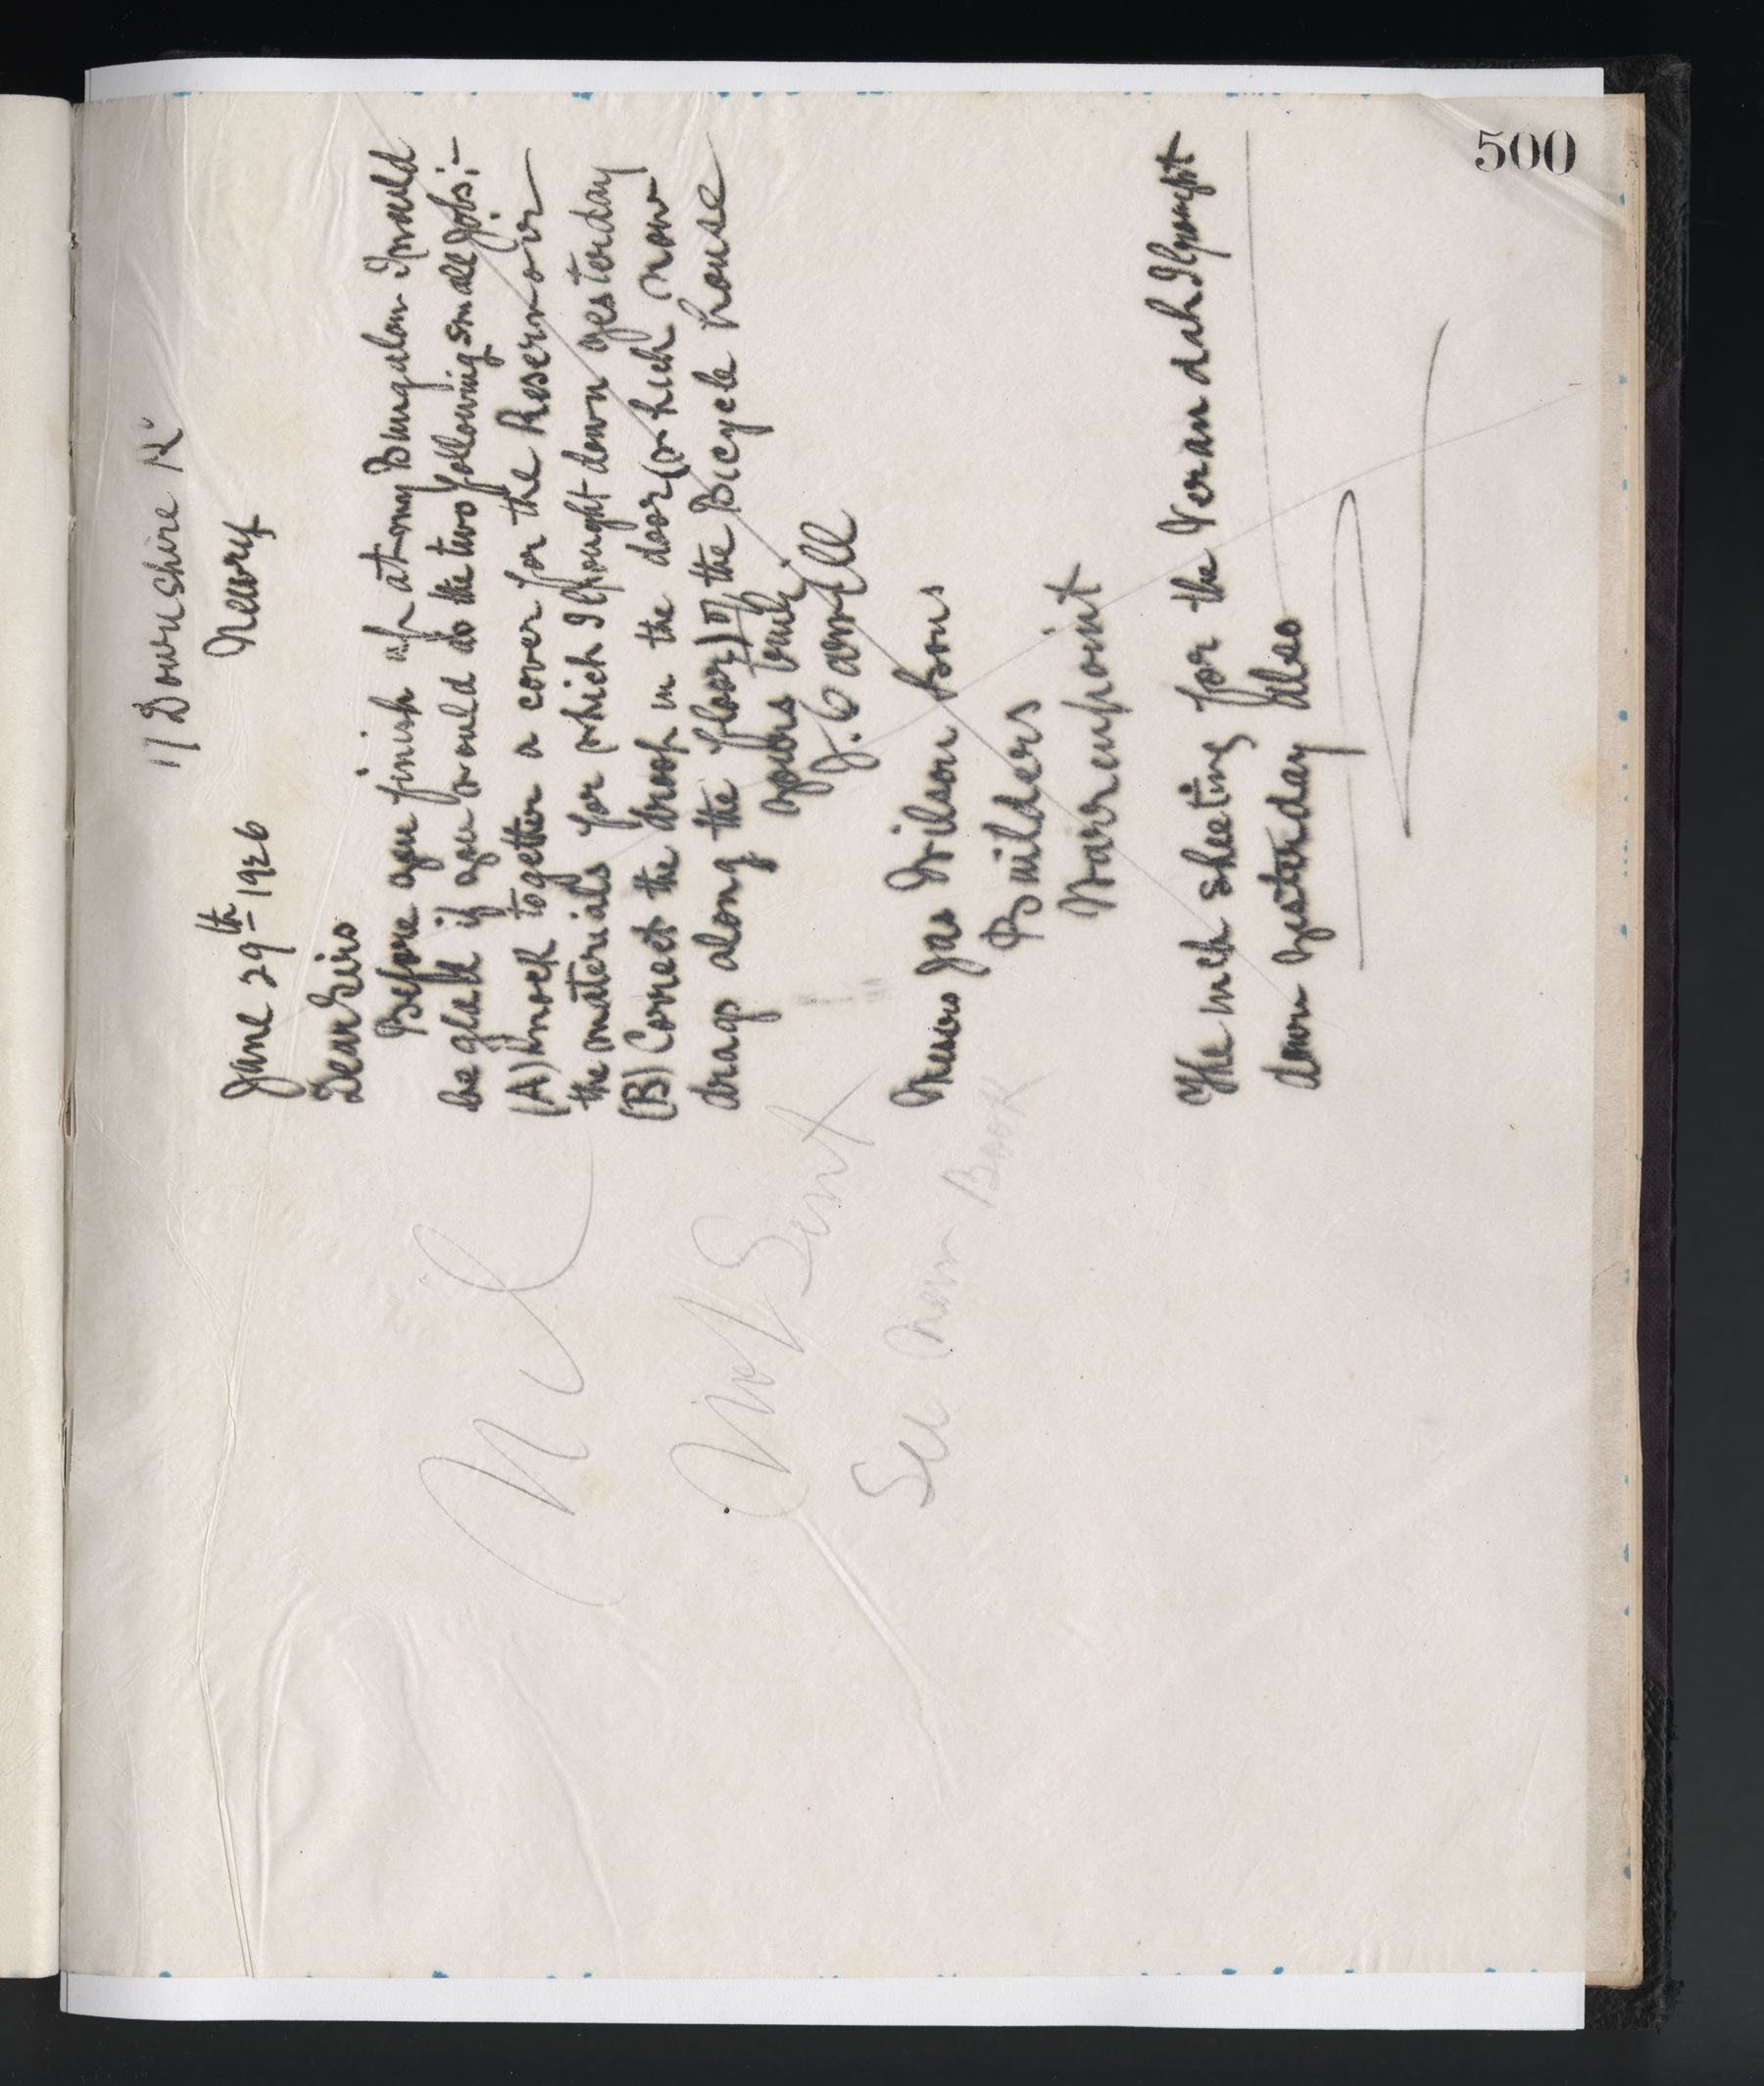 500
17 Downshire Rd
June 29th 1926 Newry
Dear Sirs
Before you finish up at my Bungalow I would
be glad if you would do the two following small jobs;-
(A) Knock together a cover for the Reservoir
the materials for which I brought down yesterday
(B) Correct the droop in the door (which now
drags along the floor) of the Bicycle house
yours truly
Messrs Jas Wilson & Sons
Builders
Warrenpoint
The inch sheeting for the Verandah I brought
down yesterday also
Not Sent
See New Book